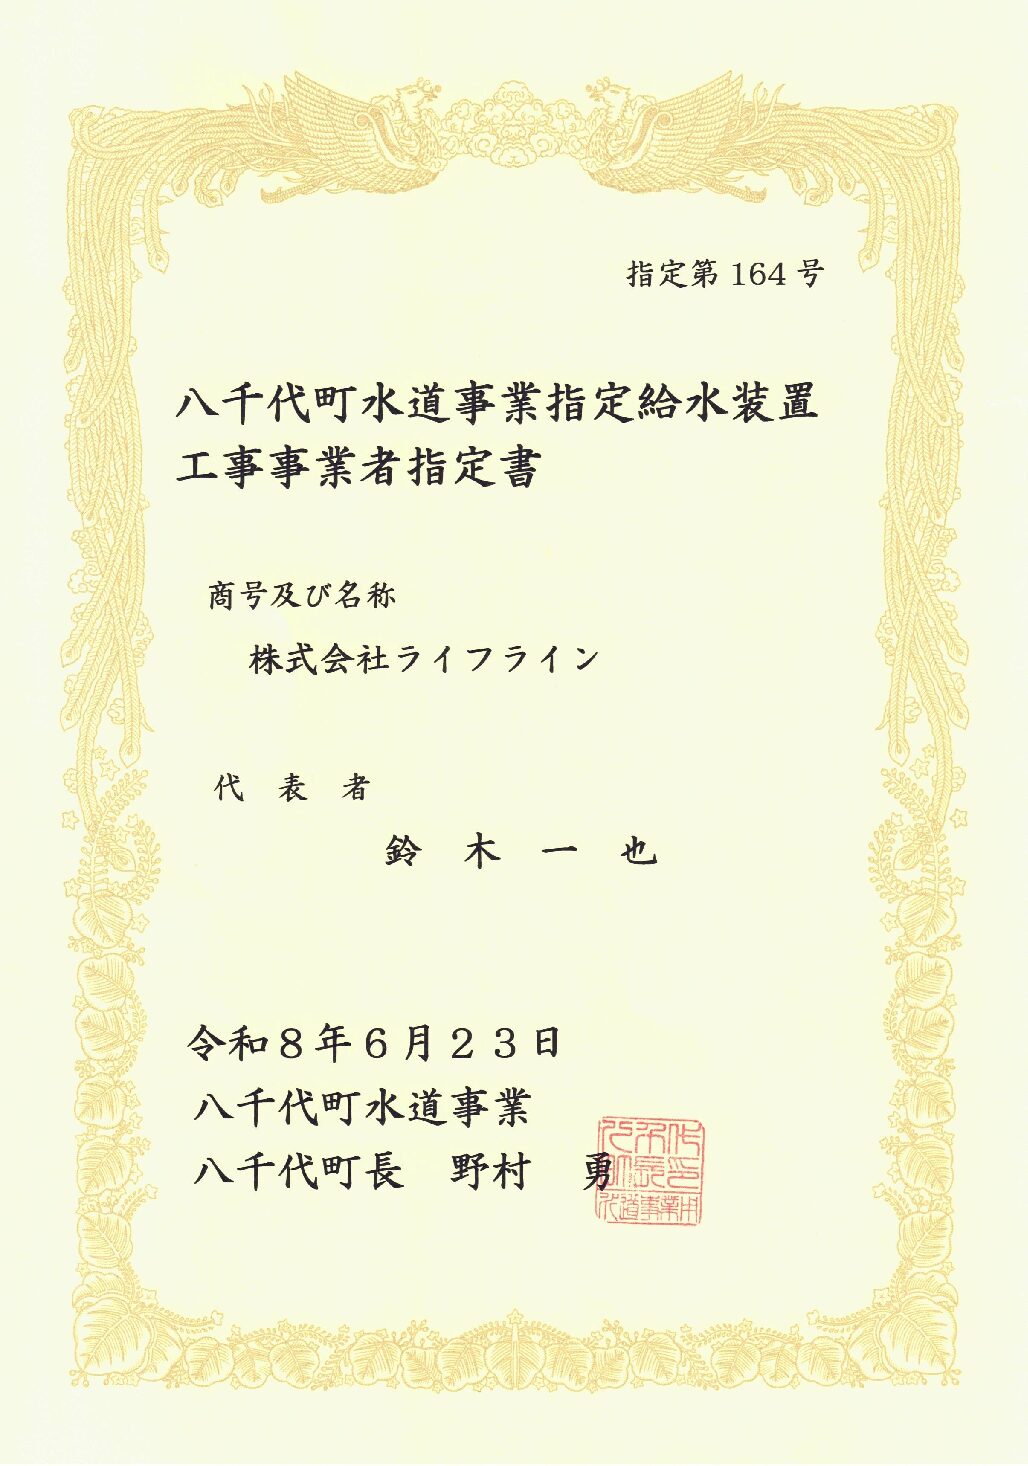 指定第 164 号
八千代町水道事業指定給水装置
工事事業者指定書
商号及び名称
株式会社ライフライン
代　表　者
鈴　木　一　也
令和８年６月２３日
八千代町水道事業
八千代町長　野村　勇